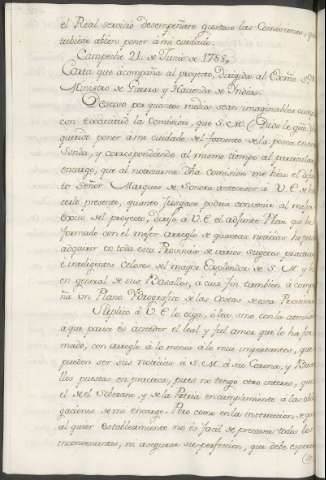 el Real servicio desempeñare gustoso las Comisiones, que
tubiere abien poner á mi cuidado.
Campeche 21 de Junio de 1788,
Carta que acompaña al proyecto, Dirigida al Exmo Sor
Ministro de Guerra y Hacienda de Indias.
Deseoso por quantos medios sean imaginables cumplir
con exactitud la Comision, que S. M. (Dios le gûe.) se
quiso poner á mi cuidado del fomento de la pesca en esta
Sonda, y correspondiendo al mismo tiempo al particular
encargo, que al noticiarme dha comision me hizo el difun-
to Señor Marques de Sonora antecesor á V. E. de ha-
cerle presente, quanto juzgare podria contribuir al mejor
exito del proyecto, dirijo á V. E. el adjunto Plan que he
formado con el mejor arreglo de quantas noticias he podido
adquirir en toda esta Provincia de varios sugetos practicos
é inteligentes celosos del mayor Explendor de S. M. y bien
en general de sus Vasallos, á cuio fin tambien acompa-
ña un Plano Hidrografico de las Costas de esta Provincia.
Suplico á V. E. lo exija, ó lea uno con la atencion
aque parece es acrehedor el leal y fiel amor que lo ha for-
mado, con arreglo á lo menos á lo mas importantes, que
pueden ser sus noticias á S. M. á su Corona, y Vasa-
llos puestas en practica, pues no tengo otro interes, que
el de el Soberano y de la Patria en cumplimiento á las obli-
gaciones de mi encargo. Pero como en la institucion de qual-
quier establecimiento no es facil se precavan todos los
inconvenientes, ni asegurar su perfeccion, que debe esperarse